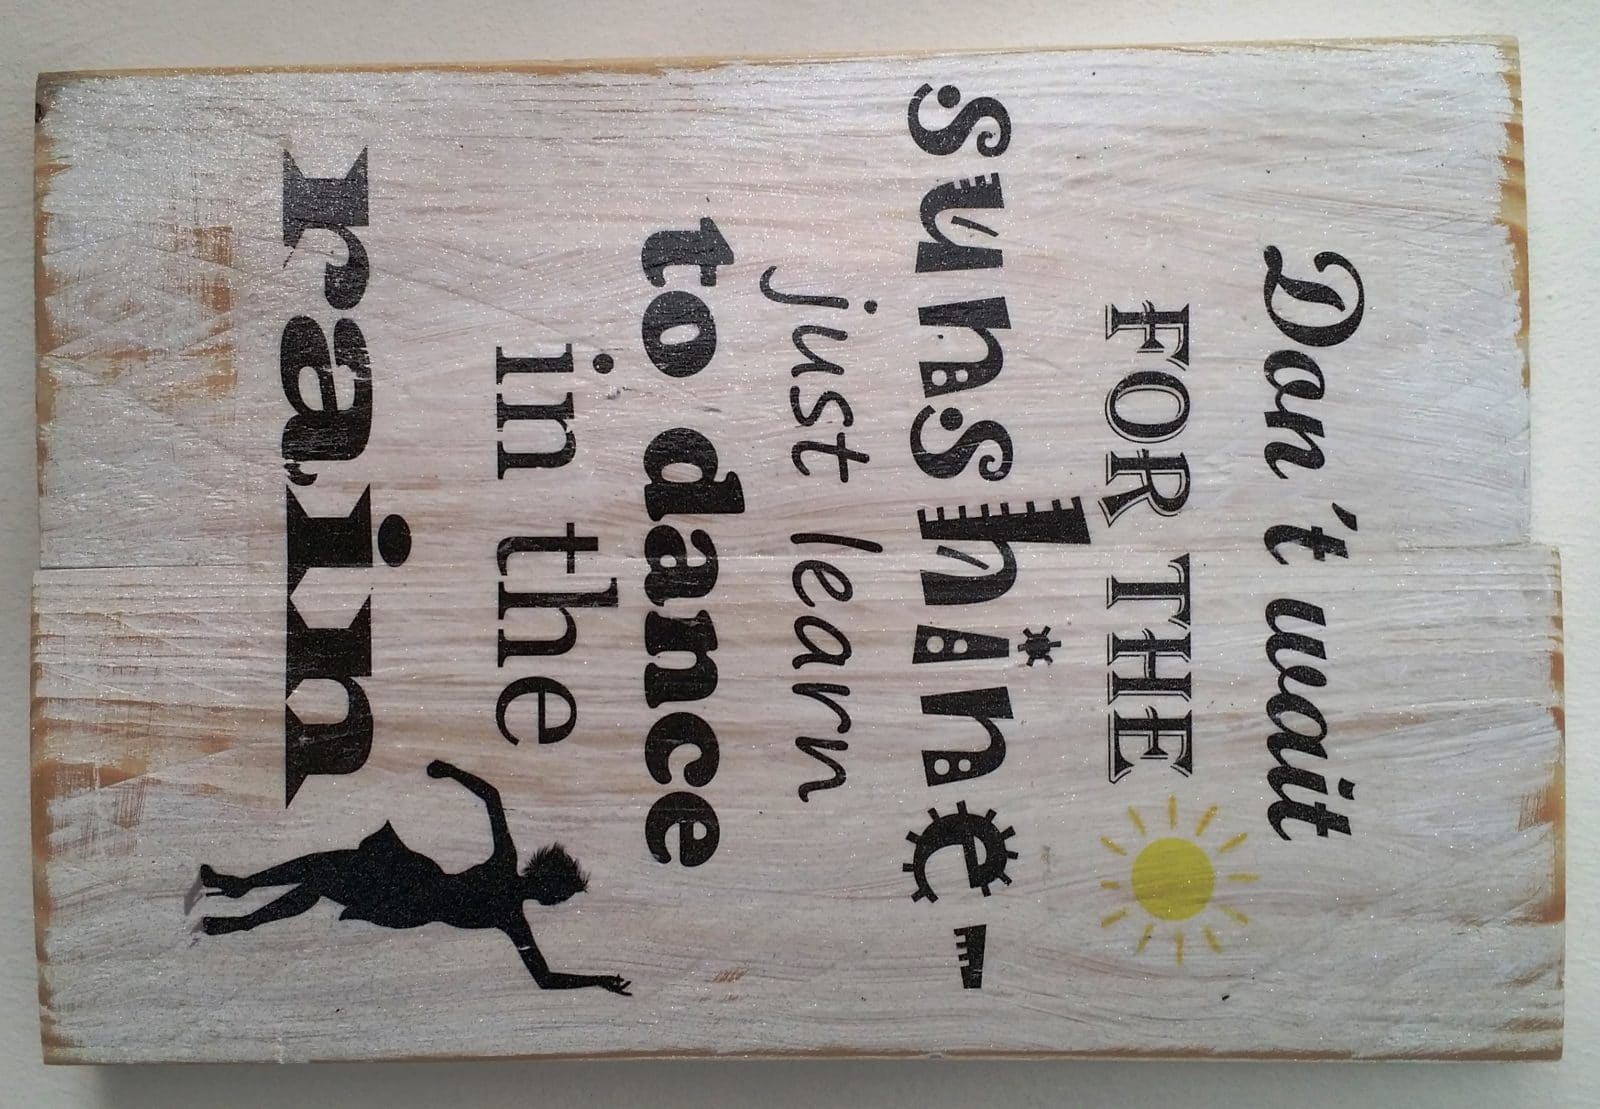 Don't wait
FOR THE
sunshine -
just learn
to dance
in the
rain